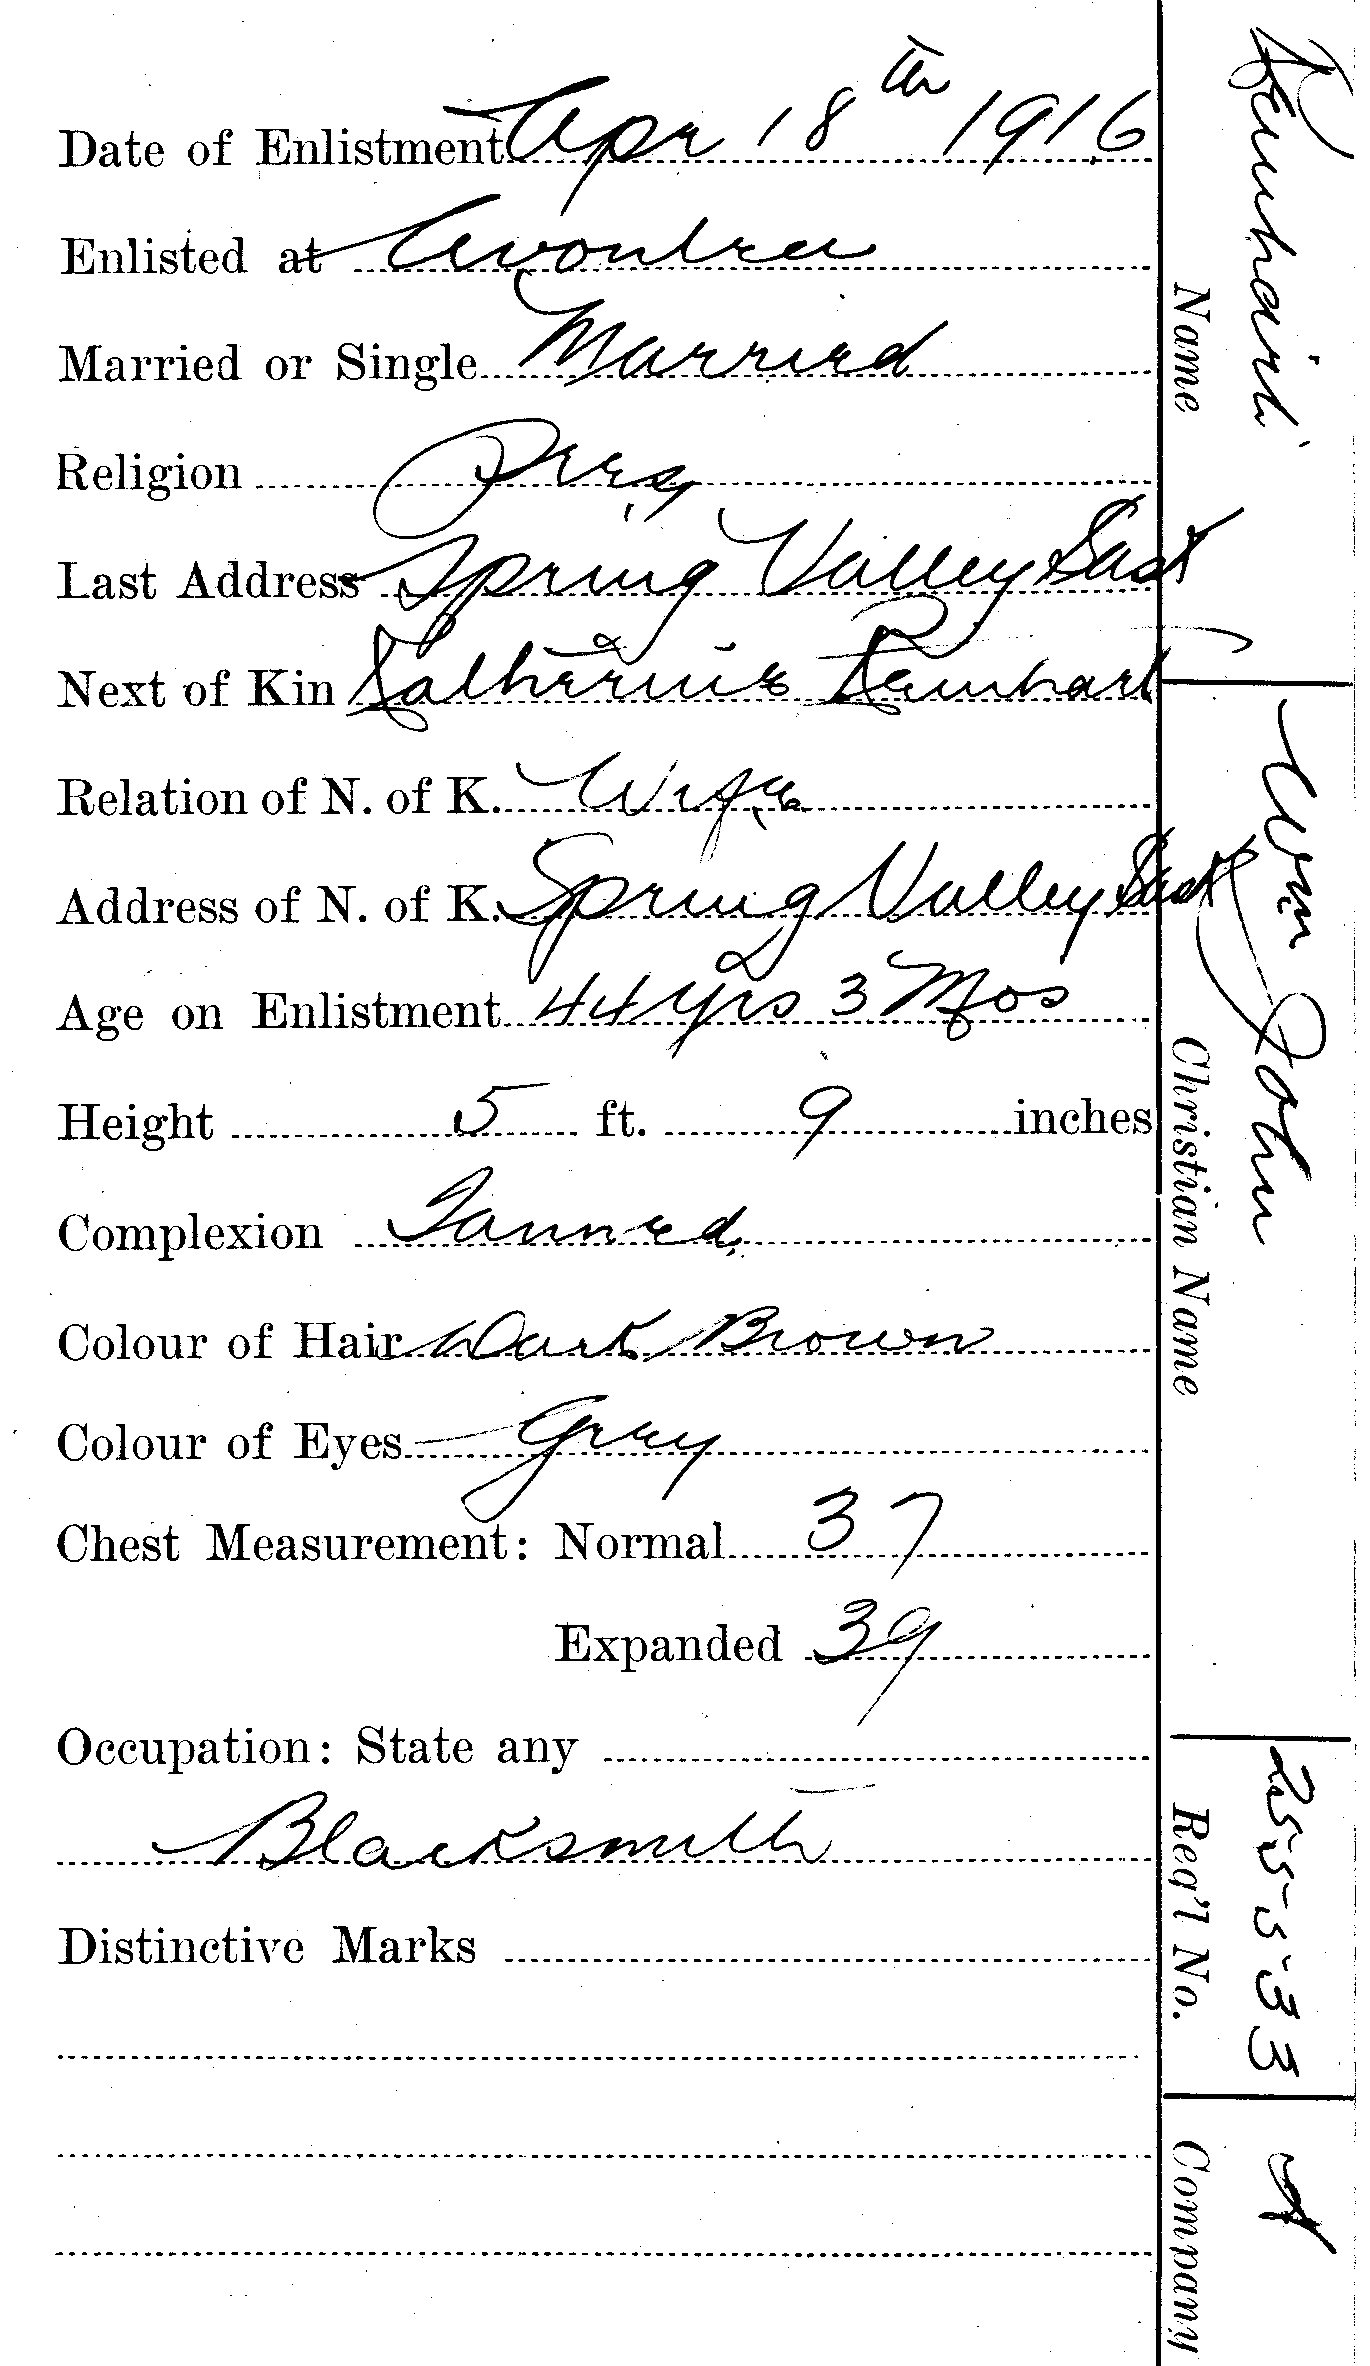 Date of Enlistment Apr 18th 1916
Enlisted at Avonlea
Married or Single Married
Religion Pres
Last Address Spring Valley Sask
Next of Kin Katherine Reinhart
Relation of N. of K. Wife
Address of N. of K. Spring Valley Sask
Age on Enlistment 44 yrs 3 Mos
Height 5 ft. 9 inches
Complexion Tanned
Colour of Hair Dark Brown
Colour of Eyes Grey
Chest Measurement: Normal 37
Expanded 39
Occupation: State any
Blacksmith
Distinctive Marks
Reinhart
Name
Wm John
Christian Name
255333
Req'l No.
A
Company